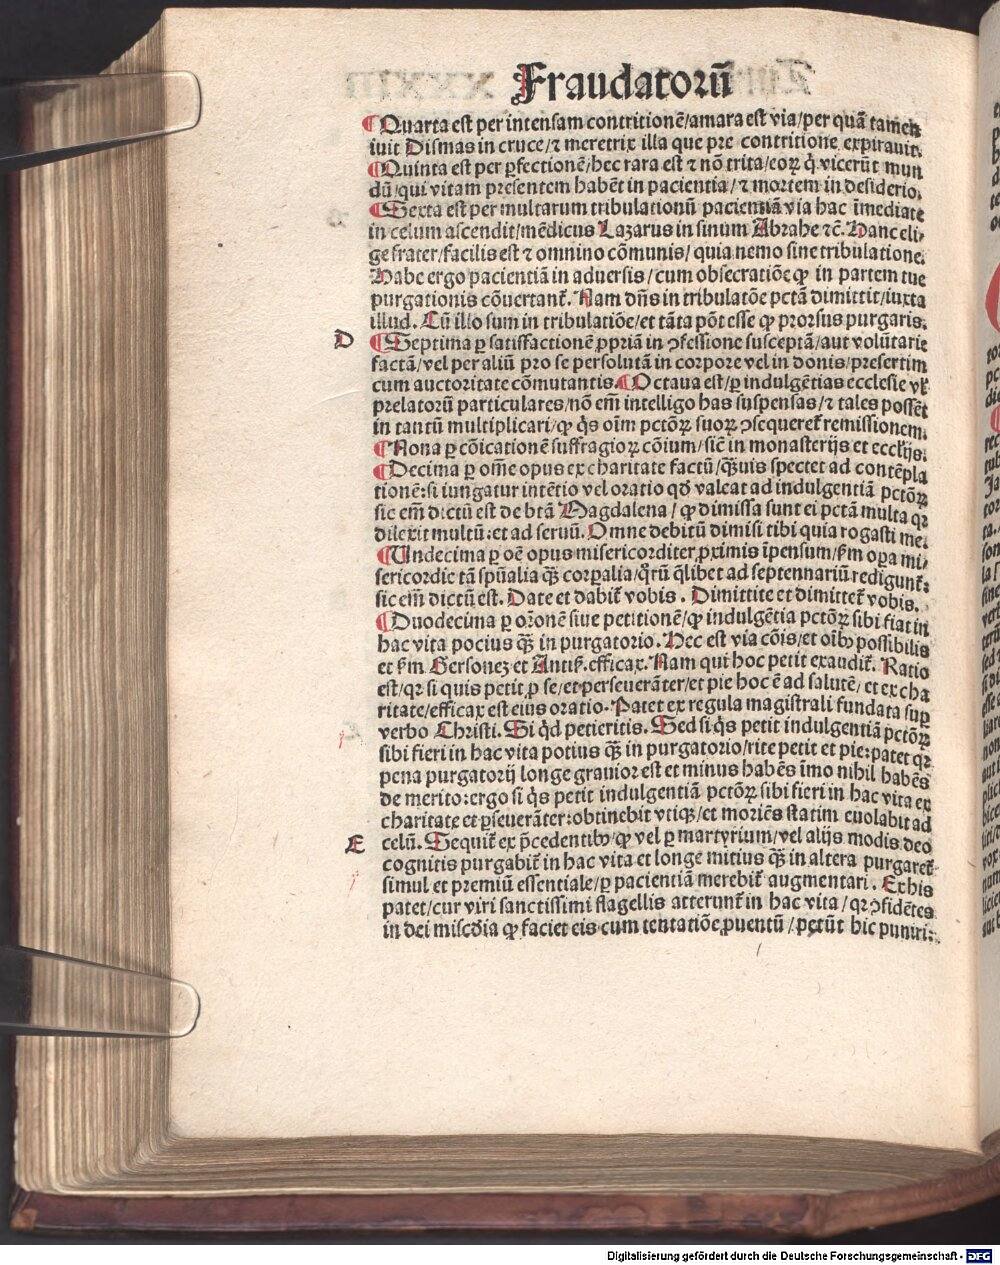 Fraudatorū
¶Quarta est per intensam contritionē/amara est via/per quā tamen
iuit Dismas in cruce/⁊ meretrix illa que pre contritione expirauit.
¶Quinta est per ꝑfectionē/hec rara est ⁊ nō trita/eoꝝ q̇ vicerūt mun
dū/qui vitam presentem habēt in pacientia/⁊ mortem in desiderio.
¶Sexta est per multarum tribulationū pacienciā via hac īmediate
in celum ascendit/mēdicus Lazarus in sinum Abrahe ⁊c̄. Hanc eli⸗
ge frater/facilis est ⁊ omnino cōmunis/quia nemo sine tribulatione.
Habe ergo pacientiā in aduersis/cum obsecratiōe ꝙ in partem tue
purgationis cōuertant᷑. Nam dn̄s in tribulatōe pctā dimittit/iuxta
illud. Cū illo sum in tribulatiōe/et tāta pōt esse ꝙ prorsus purgaris.
D ¶Septima ꝑ satisfactionē ꝓpriā in ꝯfessione susceptā/aut volūtarie
factā/vel per aliū pro se persolutā in corpore vel in donis/presertim
cum auctoritate cōmutantis.¶Octaua est/ꝑ indulgētias ecclesie vł
prelatorū particulares/nō em̄ intelligo has suspensas/⁊ tales possēt
in tantū multiplicari/ꝙ q̇s oīm pctōꝝ suoꝝ ꝯsequeret᷑ remissionem.
¶Nona ꝑ cōicationē suffragioꝝ cōium/sic̄ in monasterijs et eccłijs.
¶Decima ꝑ om̄e opus ex charitate factū/q̄ꝫuis spectet ad contēpla
tionē:si iungatur intētio vel oratio qđ valeat ad indulgentiā pctōꝝ
sic em̄ dictū est de btā Magdalena/ꝙ dimissa sunt ei pctā multa qꝛ
dilexit multū:et ad seruū. Omne debitū dimisi tibi quia rogasti me.
¶Undecima ꝑ oē opus misericorditer ꝓximis īpensum/ẜm oꝑa mi⸗
sericordie tā spūalia q̄ꝫ corꝑalia/qͦrū q̄libet ad septennariū redigunt᷑:
sic em̄ dictū est. Date et dabit᷑ vobis. Dimittite et dimittet᷑ vobis.
¶Duodecima ꝑ orōnē siue petitionē/ꝙ indulgētia pctōꝝ sibi fiat in
hac vita pocius q̄ꝫ in purgatorio. Hec est via cōis/et oībꝰ possibilis
et ẜm Gersonez et Antiẜ. efficax. Nam qui hoc petit exaudit᷑. Ratio
est/qꝛ si quis petit ꝓ se/et perseuerāter/et pie hoc ē ad salutē/et ex cha
ritate/efficax est eius oratio. Patet ex regula magistrali fundata suꝑ
verbo Christi. Si qͥd petieritis. Sed si q̇s petit indulgentiā pctōꝝ
sibi fieri in hac vita potius q̄ꝫ in purgatorio/rite petit et pie:patet qꝛ
pena purgatorij longe grauior est et minus habēs īmo nihil habēs
de merito:ergo si q̇s petit indulgentiā pctōꝝ sibi fieri in hac vita ex
charitate et ꝑseuerāter:obtinebit vtiqꝫ/et moriēs statim euolabit ad
E celū. Sequit᷑ ex p̄cedentibꝰ/ꝙ vel ꝑ martyrium/vel alijs modis deo
cognitis purgabit᷑ in hac vita et longe mitius q̄ꝫ in altera purgaret᷑
simul et premiū essentiale/ꝑ pacientiā merebit᷑ augmentari. Ex his
patet/cur viri sanctissimi flagellis atterunt᷑ in hac vita/qꝛ ꝯfidētes
in dei miscđia ꝙ faciet eis cum tentatiōe ꝓuentū/petūt hic puniri:
Digitalisierung gefördert durch die Deutsche Forschungsgemeinschaft - DFG